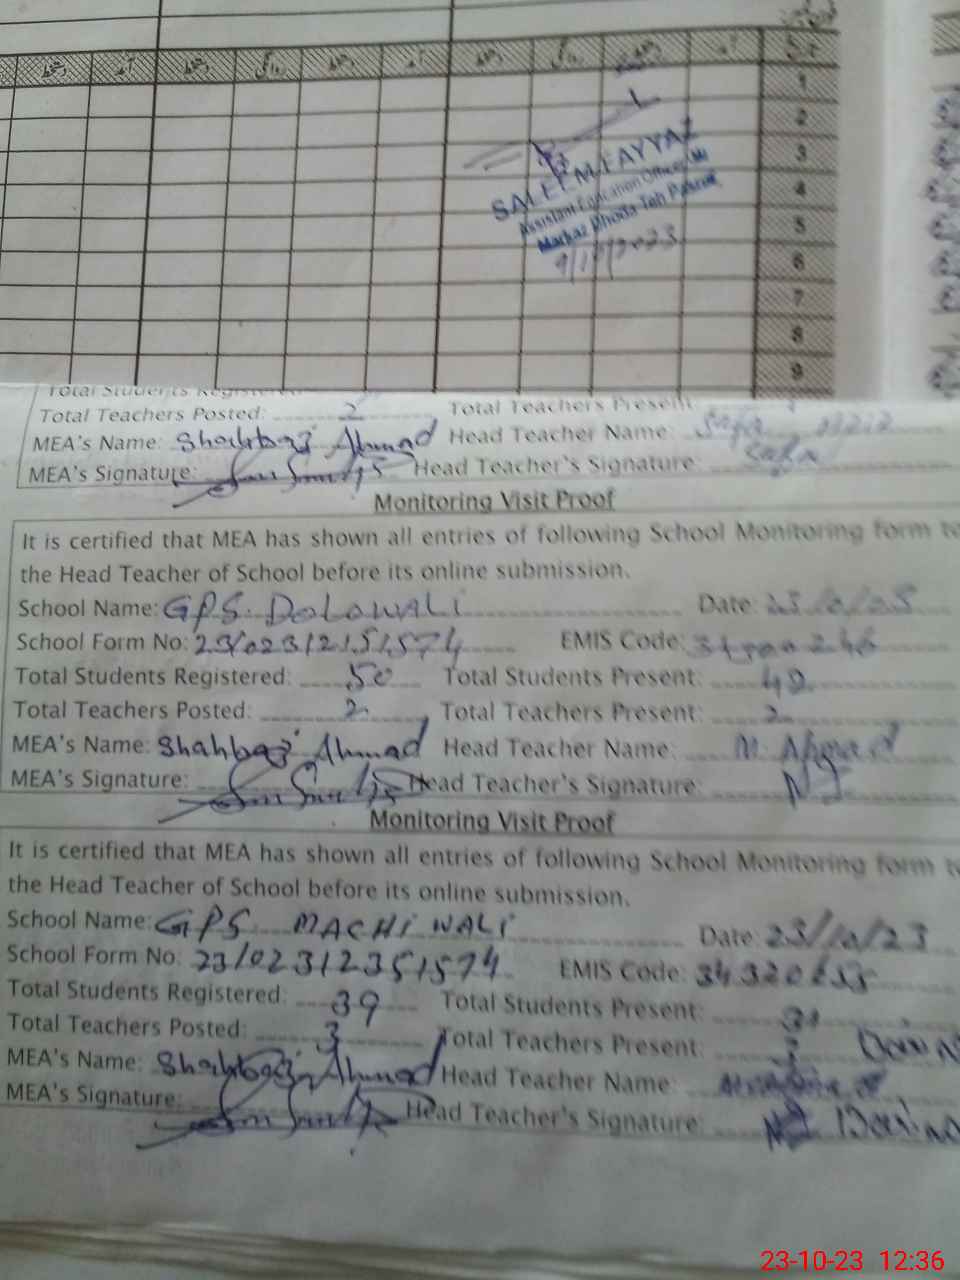 آمد دستخط روانگی دستخط آمد دستخط روانگی دستخط آمد دستخط
1
2
3
4
5
6
7
8
9
SALEEM FAYYAZ
Assistant Education Officer (M)
Markaz Teh
Total Students Registered
Total Teachers Posted: 2 Total Teachers Present
MEA's Name: Shahbaz Ahmad Head Teacher Name: Safa
MEA's Signature: Head Teacher's Signature: Safa
Monitoring Visit Proof
It is certified that MEA has shown all entries of following School Monitoring form to
the Head Teacher of School before its online submission.
School Name: GPS. DOLOWALI Date:
School Form No: 23/02312151574 EMIS Code:
Total Students Registered: 50 Total Students Present:
Total Teachers Posted: 2 Total Teachers Present: 2
MEA's Name: Shahbaz Ahmad Head Teacher Name: M. Ahmad
MEA's Signature: Head Teacher's Signature:
Monitoring Visit Proof
It is certified that MEA has shown all entries of following School Monitoring form to
the Head Teacher of School before its online submission.
School Name: GPS MACHIWALI Date: 23/10/23
School Form No. 23/02312351574 EMIS Code:
Total Students Registered: 39 Total Students Present:
Total Teachers Posted: 3 Total Teachers Present: 3
MEA's Name: Shahbaz Ahmad Head Teacher Name:
MEA's Signature: Head Teacher's Signature:
23-10-23 12:36